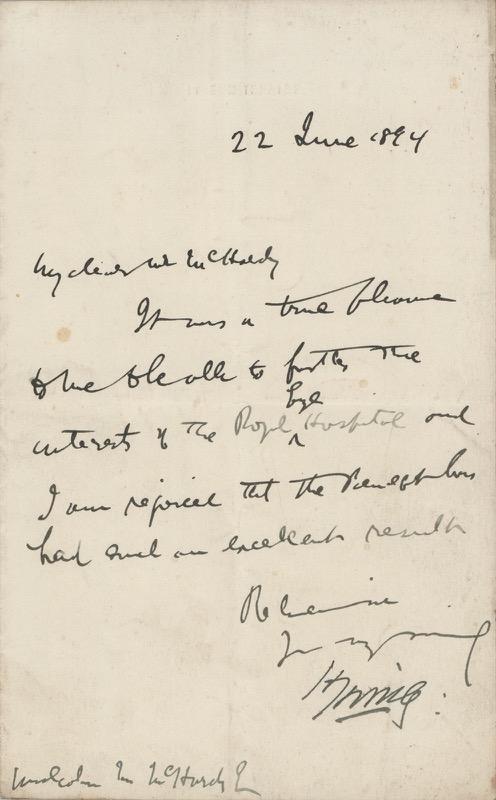 22 June 1894
My dear Mr McHardy
It was a true pleasure
to me to be able to further the
Eye
interests of the Royal ^ Hospital and
I am rejoiced that the Benefit has
had such an excellent result
Believe me
Yrs very truly
H Irving.
Malcolm M McHardy E